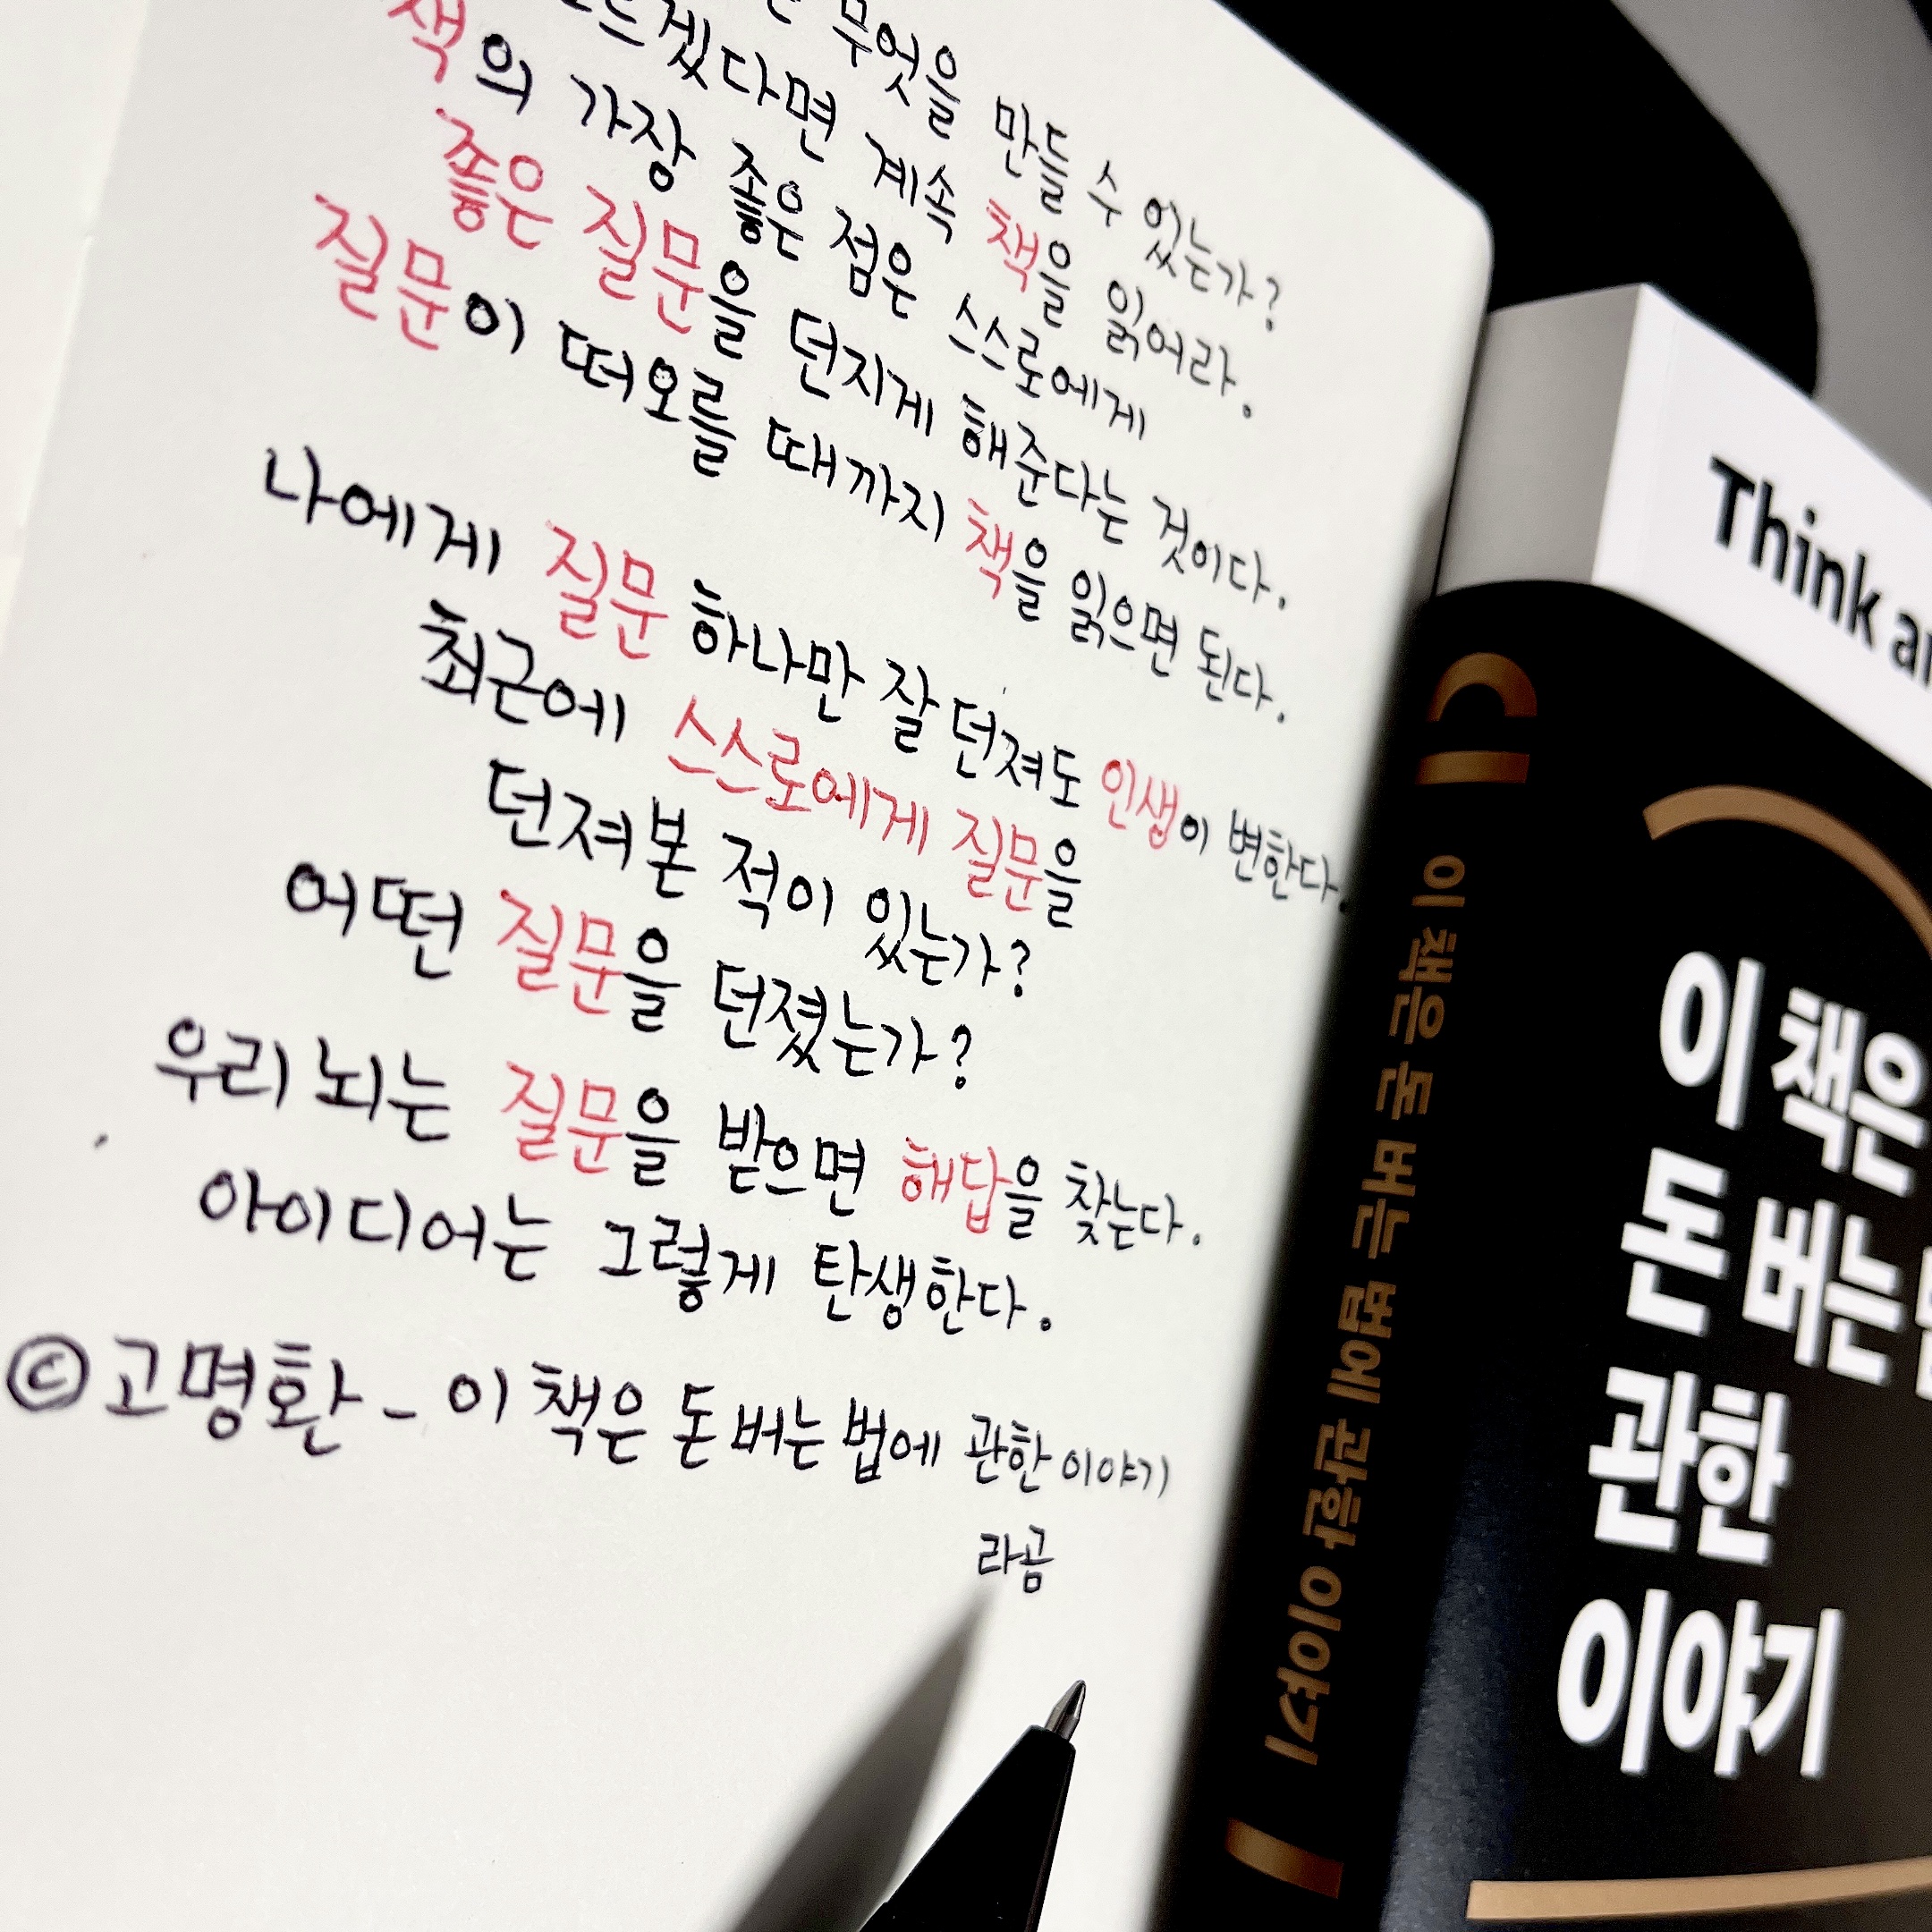 무엇을 만들 수 있는가?
모르겠다면 계속 책을 읽어라.
책의 가장 좋은 점은 스스로에게
좋은 질문을 던지게 해준다는 것이다.
질문이 떠오를 때까지 책을 읽으면 된다.
나에게 질문 하나만 잘 던져도 인생이 변한다.
최근에 스스로에게 질문을
던져본 적이 있는가?
어떤 질문을 던졌는가?
우리 뇌는 질문을 받으면 해답을 찾는다.
아이디어는 그렇게 탄생한다.
© 고명환 - 이 책은 돈 버는 법에 관한 이야기
라곰
이 책은 돈 버는 법에 관한 이야기
Think
이 책은
돈 버는
관한
이야기